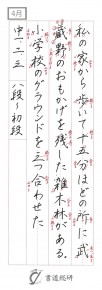 4月
私の家から歩いて十五分ほどの所に武
蔵野のおもかげを残した雑木林がある。
小学校のグラウンドを三つ合わせた
中一二三 八段〜初段
書道総研